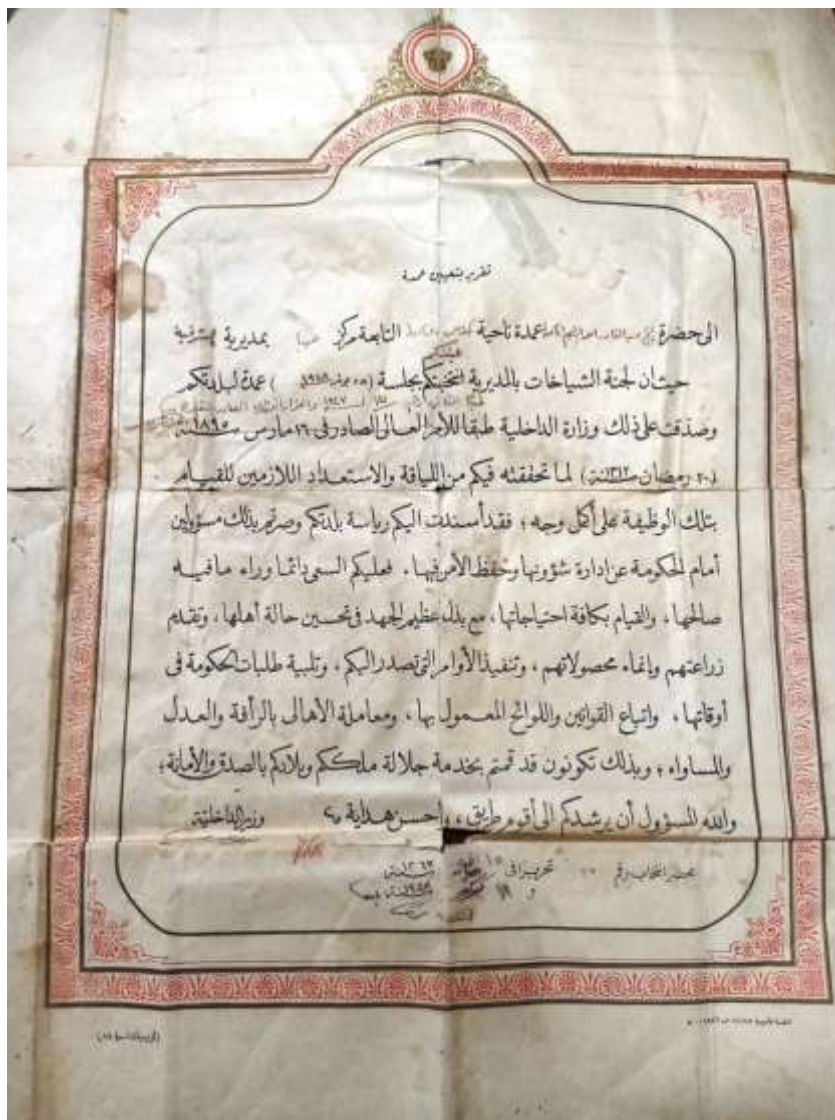 تقرير بتعيين عمدة
الى حضرة عمدة ناحية التابعة مركز بمديرية الشرقية
حيث ان لجنة الشياخات بالمديرية انتخبتكم بجلسة ( ) عمدة لبلدتكم
وصدقت على ذلك وزارة الداخلية طبقا للأمر العالى الصادر فى ١٦ مارس سنة ١٨٩٥
(٢٠ رمضان سنة ١٣١٢) لما تحققته فيكم من اللياقة والاستعداد اللازمين للقيام
بتلك الوظيفة على أكمل وجه ؛ فقد أسندت اليكم رياسة بلدتكم وصرتم بذلك مسؤولين
أمام الحكومة عن إدارة شؤونها وحفظ الأمن فيها . فعليكم السعى دائما وراء ما فيه
صالحها ، والقيام بكافة احتياجاتها ، مع بذل عظيم الجهد فى تحسين حالة أهلها ، وتقدم
زراعتهم وإنماء محصولاتهم ، وتنفيذ الأوامر التى تصدر اليكم ، وتلبية طلبات الحكومة فى
أوقاتها ، واتباع القوانين واللوائح المعمول بها ، ومعاملة الأهالى بالرأفة والعدل
والمساواه ؛ وبذلك تكونون قد قمتم بخدمة جلالة ملككم وبلادكم بالصدق والأمانة ؛
والله المسؤول أن يرشدكم الى أقوم طريق ، وأحسن هداية وزير الداخلية
محضر انتخاب رقم تحريرا فى ١٥ رمضان سنة ١٣٦٧